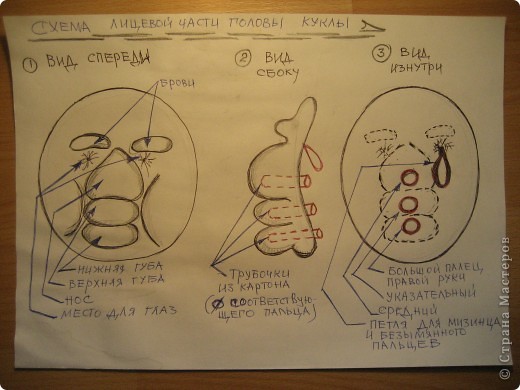 СХЕМА ЛИЦЕВОЙ ЧАСТИ ГОЛОВЫ КУКЛЫ
① ВИД СПЕРЕДИ
БРОВИ
НИЖНЯЯ ГУБА
ВЕРХНЯЯ ГУБА
НОС
МЕСТО ДЛЯ ГЛАЗ
② ВИД
СБОКУ
ТРУБОЧКИ
ИЗ КАРТОНА
(Ø СООТВЕТСТВУЮ-
ЩЕГО ПАЛЬЦА)
③ ВИД
ИЗНУТРИ
БОЛЬШОЙ ПАЛЕЦ,
ПРАВОЙ РУКИ
УКАЗАТЕЛЬНЫЙ
СРЕДНИЙ
ПЕТЛЯ ДЛЯ МИЗИНЦА
И БЕЗЫМЯННОГО
ПАЛЬЦЕВ
© Страна Мастеров